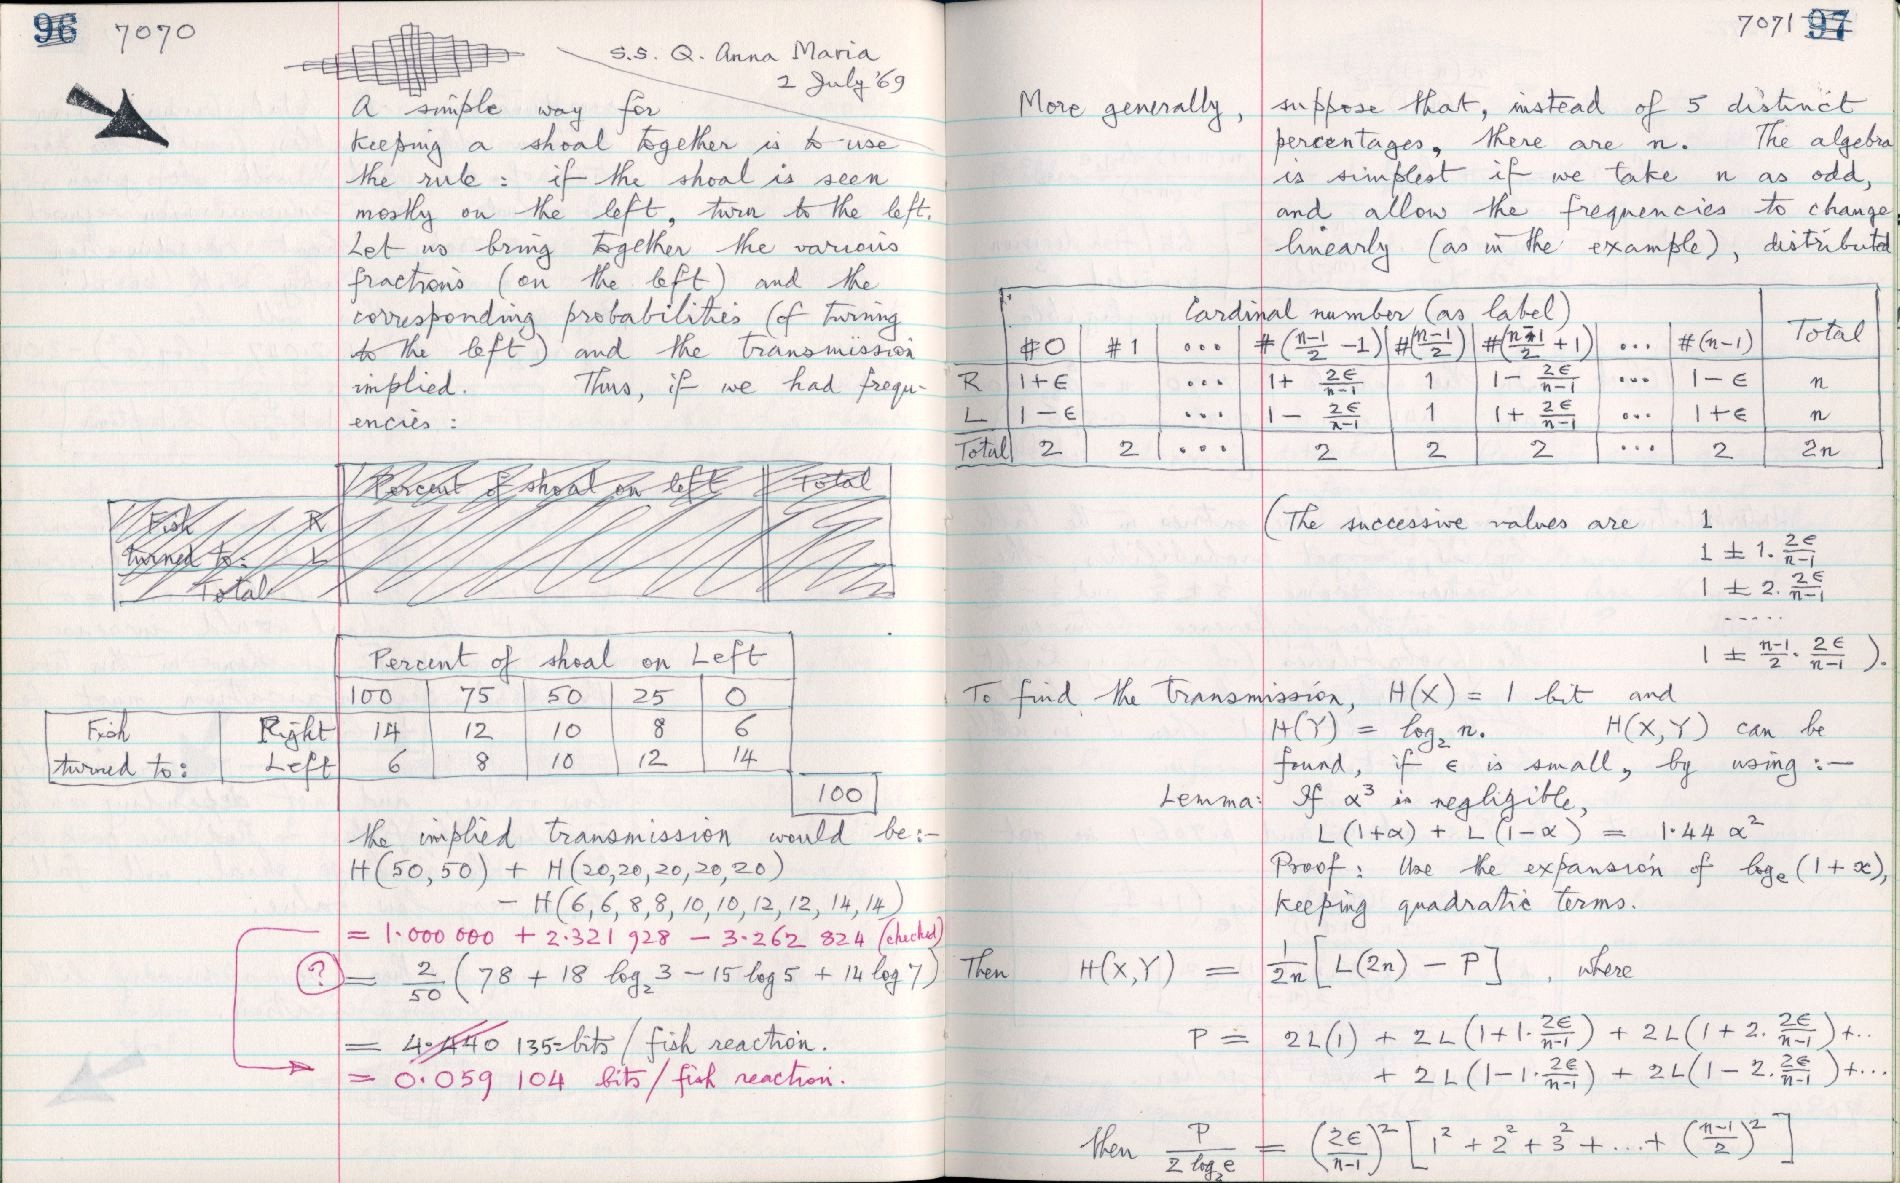 96 7070
S.S. Q. Anna Maria
2 July '69
A simple way for
keeping a shoal together is to use
the rule: if the shoal is seen
mostly on the left, turn to the left.
Let us bring together the various
fractions (on the left) and the
corresponding probabilities (of turning
to the left) and the transmission
implied. Thus, if we had frequ-
encies:
Percent of shoal on left Total
Fish R
turned to: L
Total
Percent of shoal on Left
100 75 50 25 0
Fish Right 14 12 10 8 6
turned to: Left 6 8 10 12 14
100
the implied transmission would be:-
H(50,50) + H(20,20,20,20,20)
- H(6,6,8,8,10,10,12,12,14,14)
= 1.000 000 + 2.321 928 - 3.262 824 (checked)
? = 2/50 (78 + 18 log₂3 - 15 log 5 + 14 log 7)
= 4.440 135 bits/fish reaction.
= 0.059 104 bits/fish reaction.
7071 97
More generally, suppose that, instead of 5 distinct
percentages, there are n. The algebra
is simplest if we take n as odd,
and allow the frequencies to change
linearly (as in the example), distributed
Cardinal number (as label) Total
#0 #1 ... #(n-1/2 -1) #(n-1/2) #(n-1/2 +1) ... #(n-1)
R 1+ε ... 1+ 2ε/n-1 1 1- 2ε/n-1 ... 1-ε n
L 1-ε ... 1- 2ε/n-1 1 1+ 2ε/n-1 ... 1+ε n
Total 2 2 ... 2 2 2 ... 2 2n
(The successive values are 1
1 ± 1. 2ε/n-1
1 ± 2. 2ε/n-1
.....
1 ± n-1/2 . 2ε/n-1 ).
To find the transmission, H(X) = 1 bit and
H(Y) = log₂ n. H(X,Y) can be
found, if ε is small, by using:-
Lemma: If α³ is negligible,
L(1+α) + L(1-α) = 1.44 α²
Proof: Use the expansion of logₑ(1+x),
keeping quadratic terms.
Then H(X,Y) = 1/2n [L(2n) - P] , where
P = 2L(1) + 2L(1+1. 2ε/n-1) + 2L(1+2. 2ε/n-1) +..
+ 2L(1-1. 2ε/n-1) + 2L(1-2. 2ε/n-1) +...
then P/2 log₂e = (2ε/n-1)² [1² + 2² + 3² + ... + (n-1/2)²]